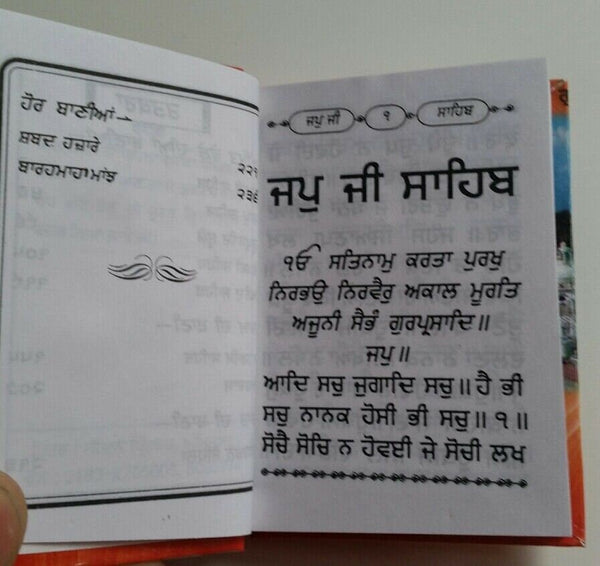 ਹੋਰ ਬਾਣੀਆਂ—
ਸ਼ਬਦ ਹਜ਼ਾਰੇ
੨੨੧
ਬਾਰਹਮਾਹਾ ਮਾਂਝ
੨੩੬
ਜਪੁ ਜੀ ੧ ਸਾਹਿਬ
ਜਪੁ ਜੀ ਸਾਹਿਬ
ੴ ਸਤਿਨਾਮੁ ਕਰਤਾ ਪੁਰਖੁ
ਨਿਰਭਉ ਨਿਰਵੈਰੁ ਅਕਾਲ ਮੂਰਤਿ
ਅਜੂਨੀ ਸੈਭੰ ਗੁਰਪ੍ਰਸਾਦਿ॥
ਜਪੁ॥
ਆਦਿ ਸਚੁ ਜੁਗਾਦਿ ਸਚੁ॥ ਹੈ ਭੀ
ਸਚੁ ਨਾਨਕ ਹੋਸੀ ਭੀ ਸਚੁ॥ ੧॥
ਸੋਚੈ ਸੋਚਿ ਨ ਹੋਵਈ ਜੇ ਸੋਚੀ ਲਖ